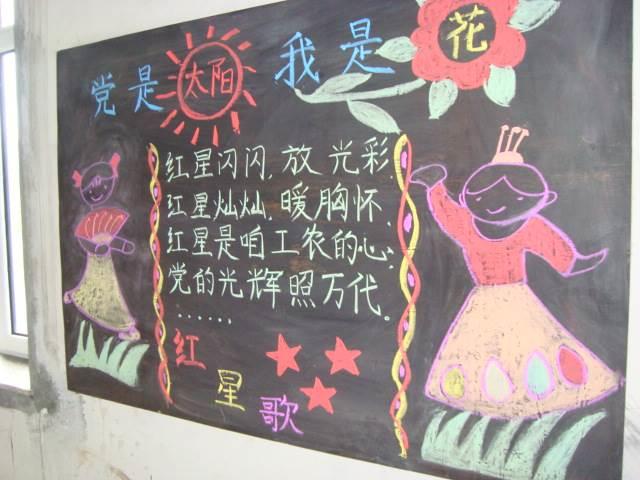 党是太阳 我是花
红星闪闪,放光彩,
红星灿灿,暖胸怀,
红星是咱工农的心,
党的光辉照万代。
......
红星歌